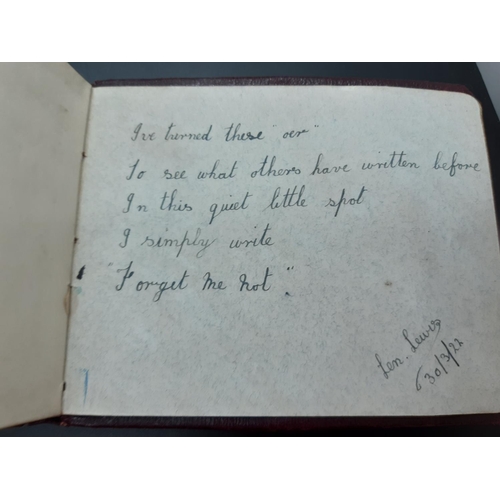 I've turned these "oer"
To see what others have written before
In this quiet little spot
I simply write
Forget me not".
Len. Lewis
30/3/22